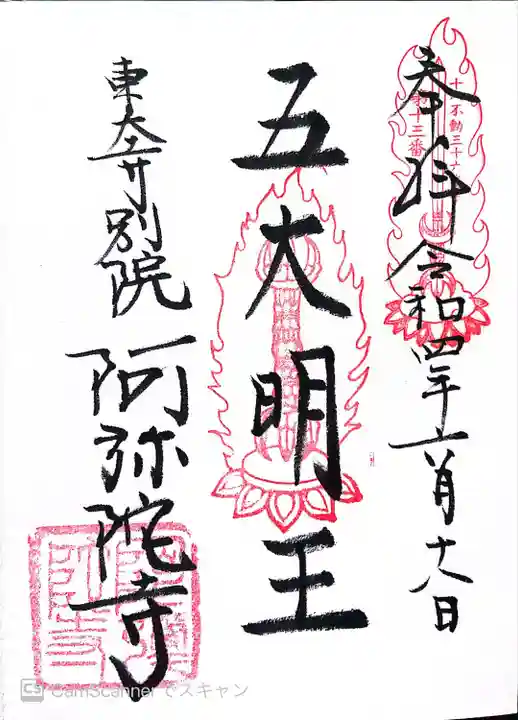 奉拝 令和四年六月十八日
十 不動三十六
第十三番
五大明王
東大寺別院 阿弥陀寺
CS CamScanner でスキャン